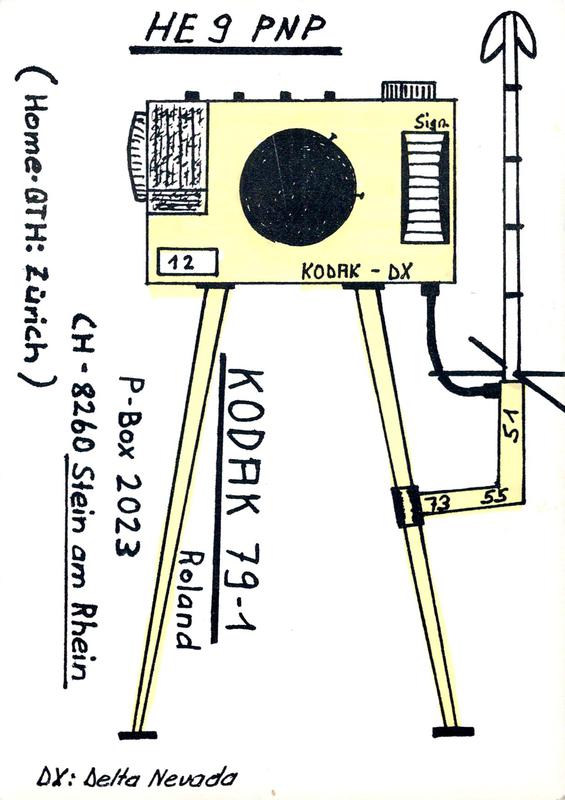 HE 9 PNP
Sign.
12
KODAK - DX
51
55
73
KODAK 79-1
Roland
P-Box 2023
CH - 8260 Stein am Rhein
(Home-QTH: Zürich)
DX: Delta Nevada